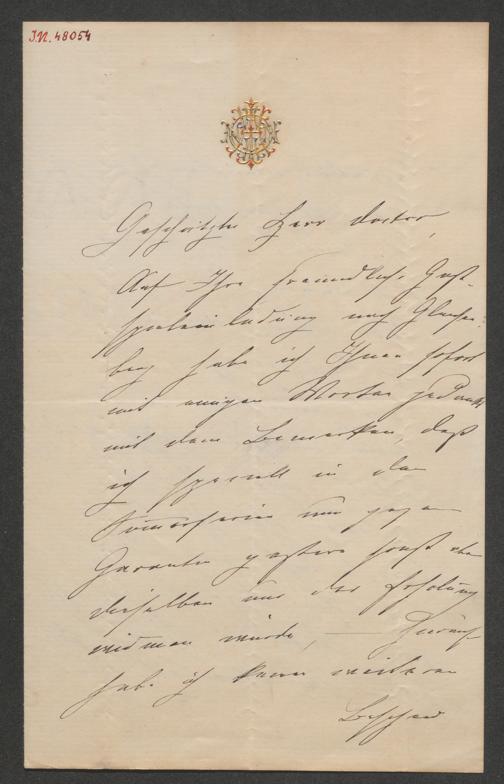 I.N. 48054
Geschätzter Herr Doctor,
Auf Ihre freundliche Gast-
spieleinladung nach Gleichen-
berg habe ich Ihnen sofort
mit einigen Worten gedankt
mit dem Bemerken, daß
ich speciell in den
Sommerferien nur gegen
Garantie gastire sonst aber
dieselben nur der Erholung
widmen würde, — Hierauf
habe ich keinen weiteren
Bescheid